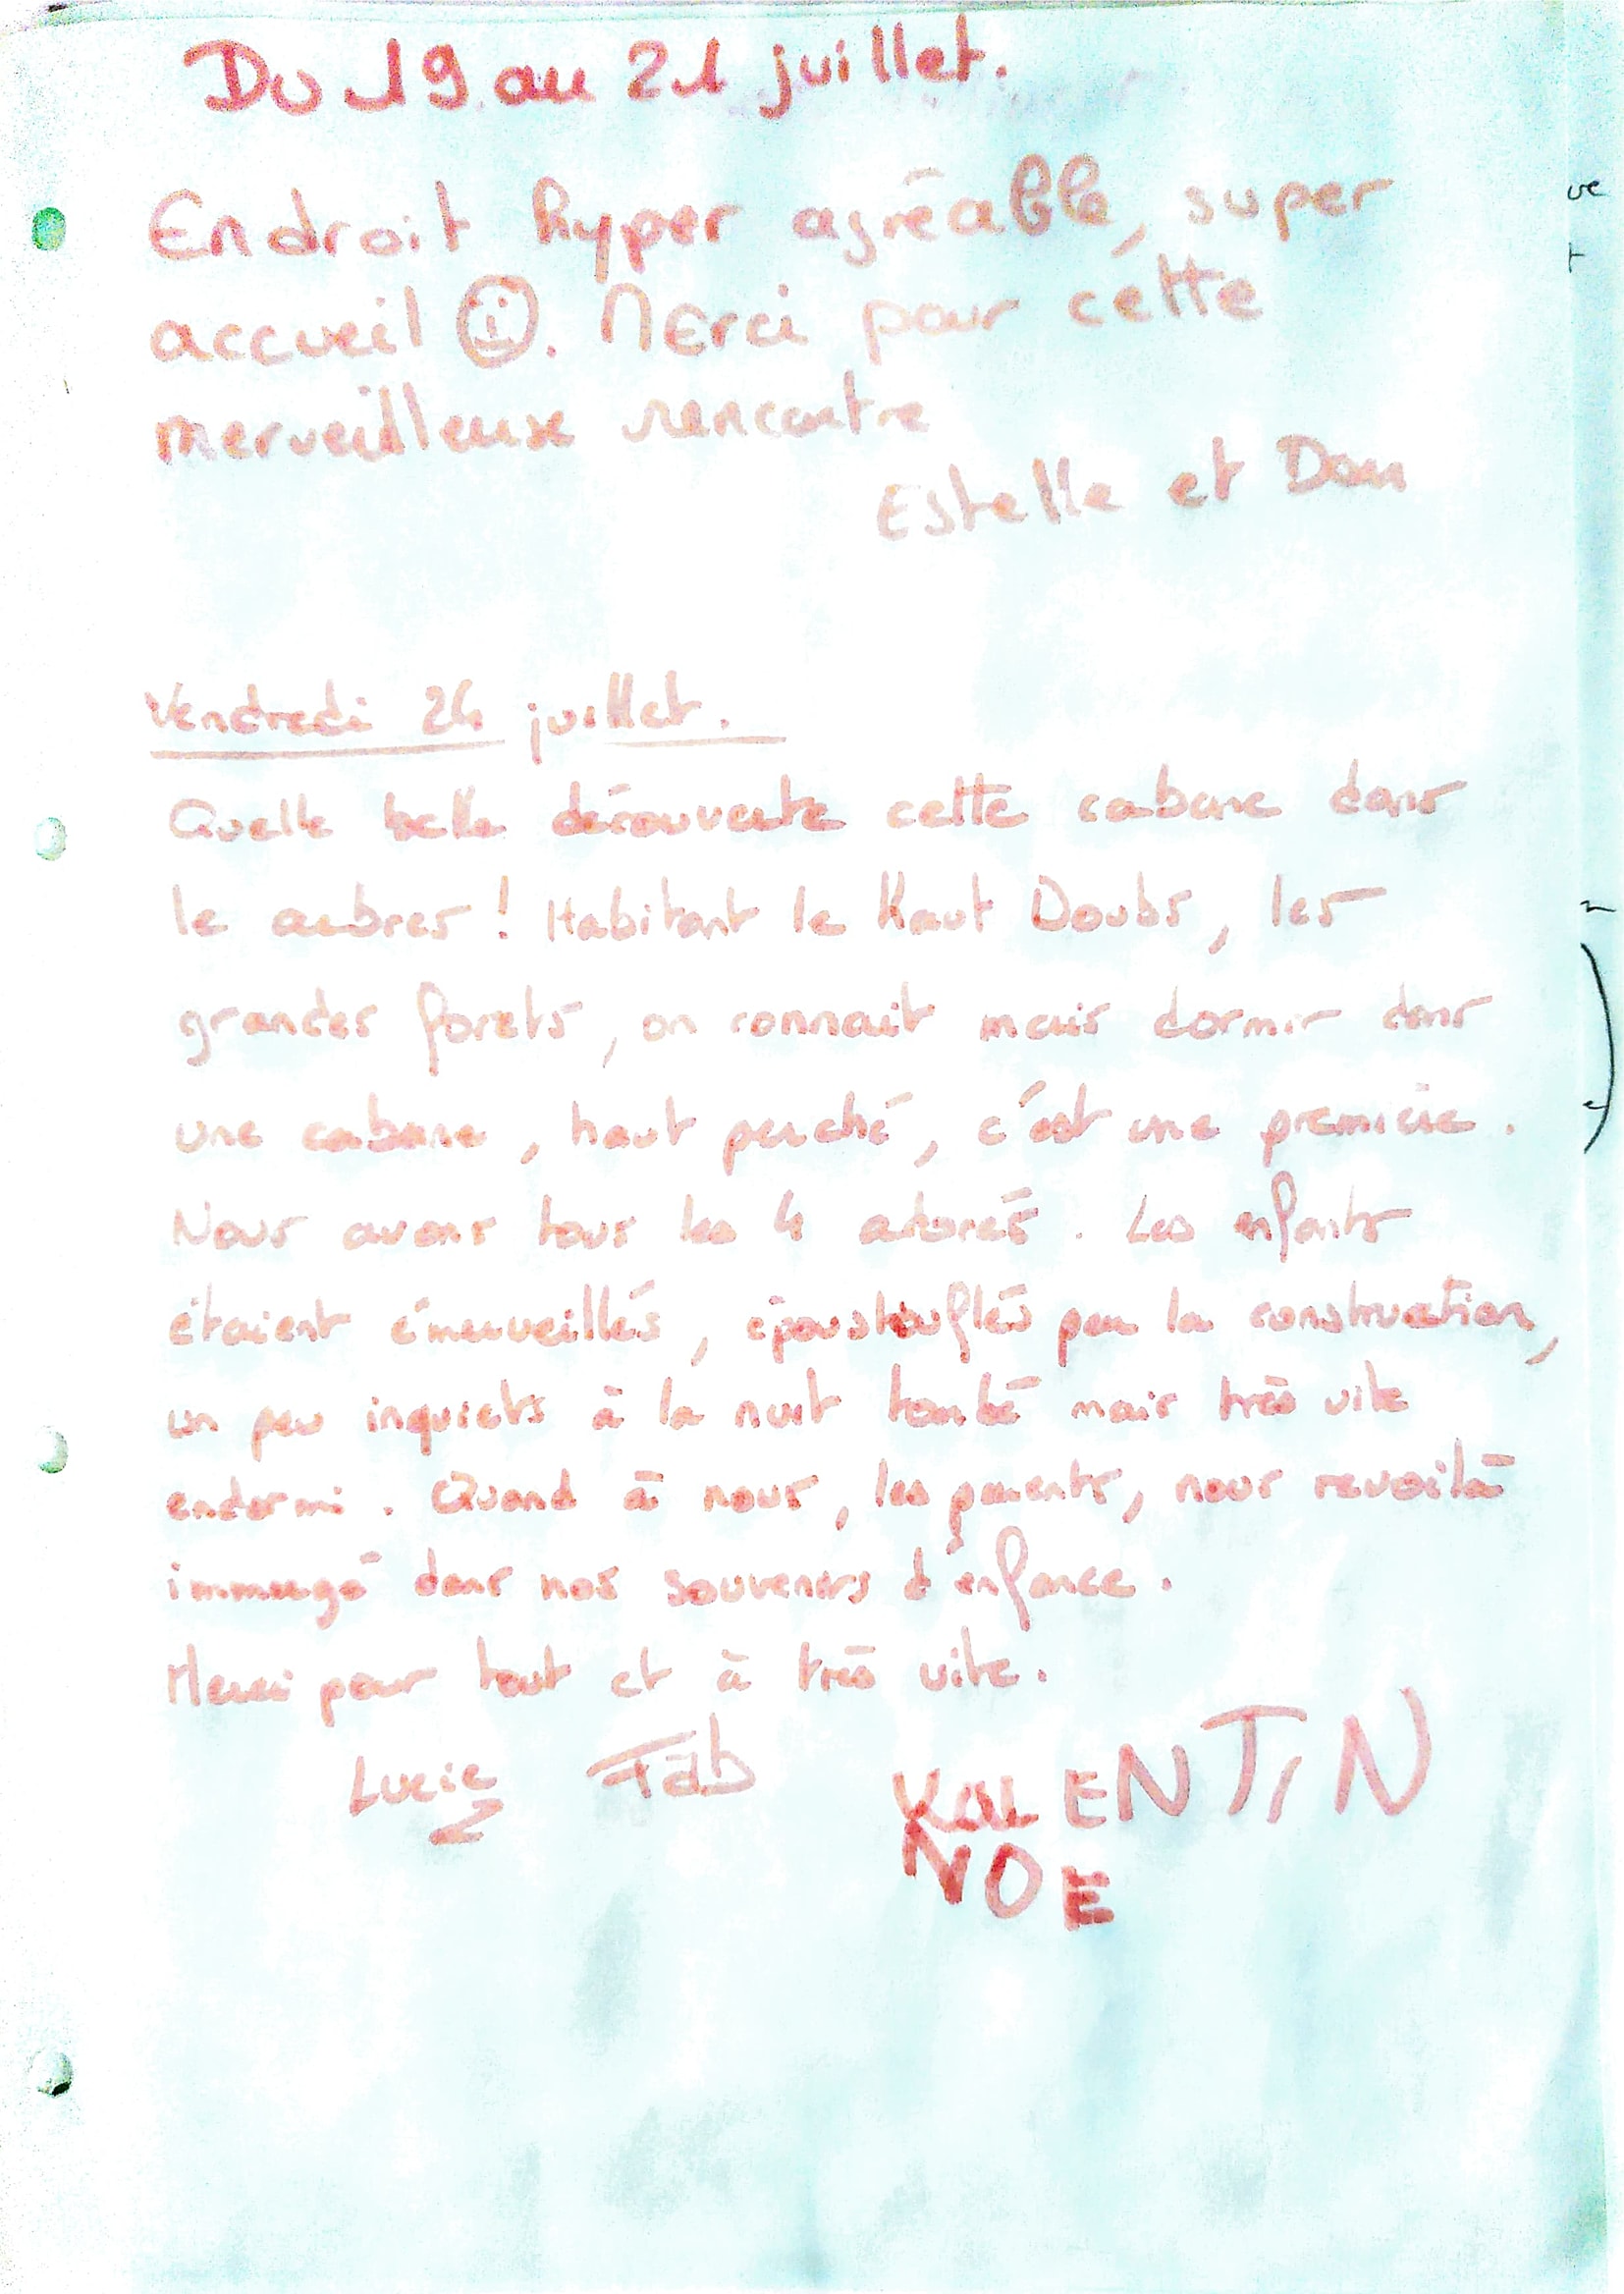 Du 19 au 21 juillet.
Endroit hyper agréable, super
accueil ☺. Merci pour cette
merveilleuse rencontre
Estelle et Dom
Vendredi 24 juillet.
Quelle belle découverte cette cabane dans
le arbres ! Habitant le Haut Doubs, les
grandes forets, on connait mais dormir dans
une cabane, haut perché, c'est une première.
Nous avons tous les 4 adorés. Les enfants
étaient émerveillés, époustouflés par la construction,
un peu inquiets à la nuit tombé mais très vite
endormi. Quand à nous, les parents, nous revoilà
immergé dans nos souvenirs d'enfance.
Merci pour tout et à très vite.
Lucie Fab VALENTIN
NOE